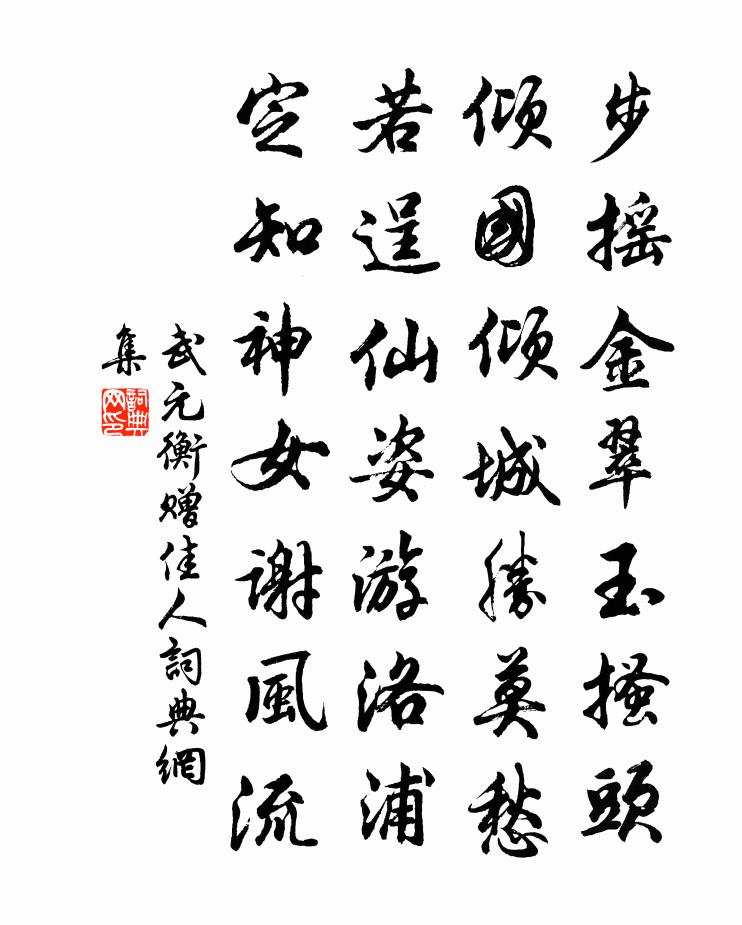 步摇金翠玉搔頭
傾國傾城勝莫愁
若逞仙姿游洛浦
定知神女謝風流
武元衡赠佳人詞典網
集
詞典
网印